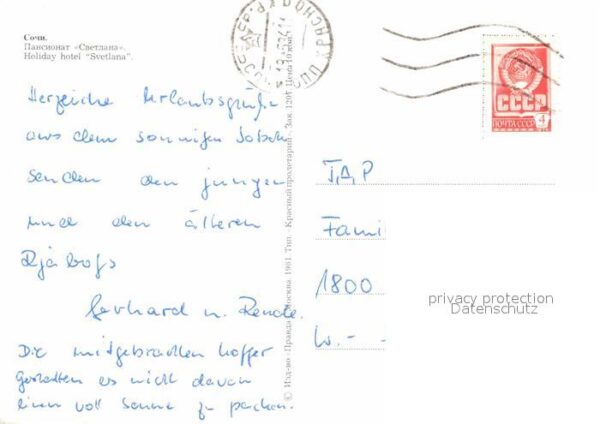 Сочи.
Пансионат «Светлана».
Holiday hotel "Svetlana".
Herzliche Urlaubsgrüße
aus dem sonnigen Sotschi
senden den jungen
und den älteren
Rjabofs
Gerhard u. Renate.
Die mitgebrachten Koffer
gestatten es nicht davon
einen voll Sonne zu packen.
© Изд-во «Правда». Москва. 1981. Тип. «Красный пролетарий». Зак. 1201. Цена 10 коп.
СССР
ПОЧТА СССР
4
Г,Д,Р
Fami
1800
W.-
privacy protection
Datenschutz